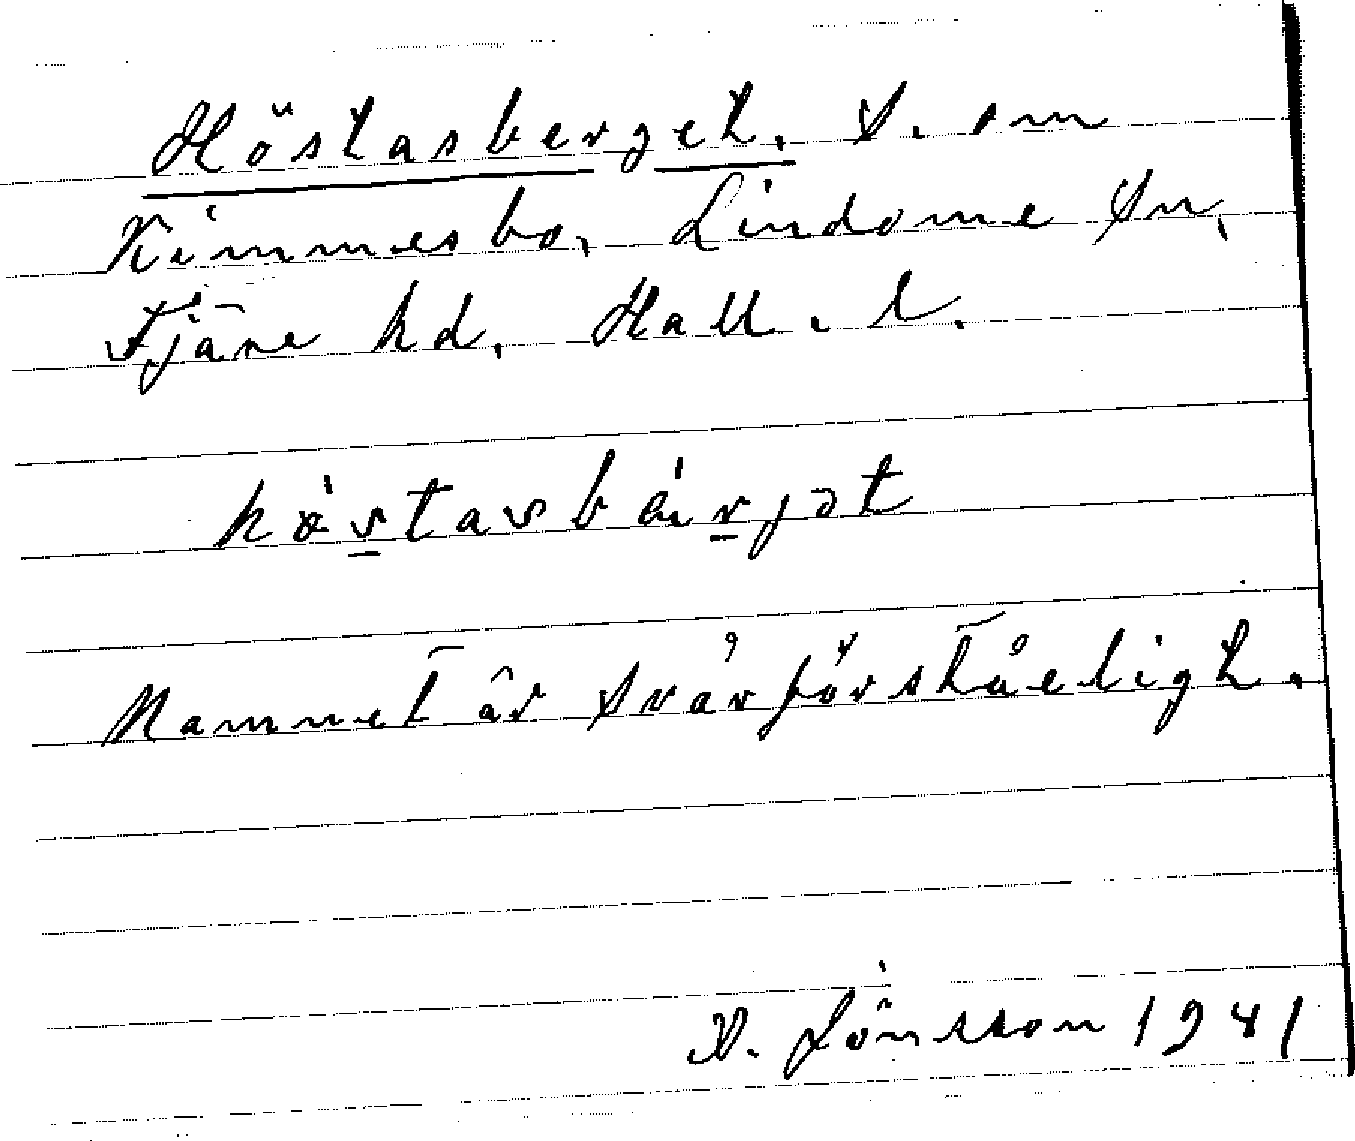 Höstasberget. S. om
Kimmesbo, Lindome sn,
Fjäre hd, Hall. l.
Namnet är svårförståeligt.
Jönsson 1941